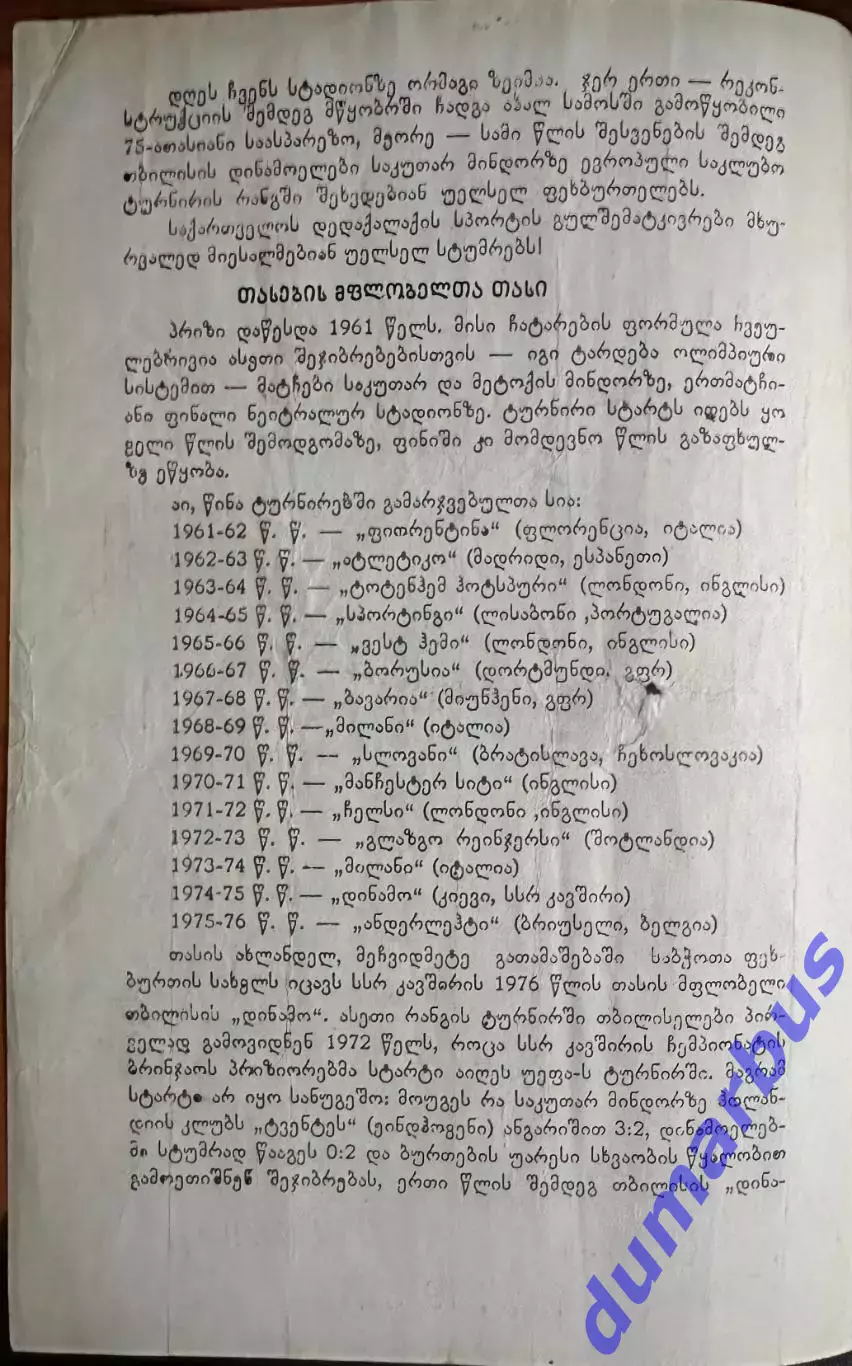 დღეს ჩვენს სტადიონზე ორმაგი ზეიმია. ჯერ ერთი — რეკონ-
სტრუქციის შემდეგ მწყობრში ჩადგა ახალ სამოსში გამოწყობილი
75-ათასიანი საასპარეზო, მეორე — სამი წლის შესვენების შემდეგ
თბილისის დინამოელები საკუთარ მინდორზე ევროპული საკლუბო
ტურნირის რანგში შეხვდებიან უელსელ ფეხბურთელებს.
საქართველოს დედაქალაქის სპორტის გულშემატკივრები მხუ-
რვალედ მიესალმებიან უელსელ სტუმრებს!
თასების მფლობელთა თასი
პრიზი დაწესდა 1961 წელს. მისი ჩატარების ფორმულა ჩვეუ-
ლებრივია ასეთი შეჯიბრებებისთვის — იგი ტარდება ოლიმპიური
სისტემით — მატჩები საკუთარ და მეტოქის მინდორზე, ერთმატჩი-
ანი ფინალი ნეიტრალურ სტადიონზე. ტურნირი სტარტს იღებს ყო
ველი წლის შემოდგომაზე, ფინიში კი მომდევნო წლის გაზაფხულ-
ზე ეწყობა.
აი, წინა ტურნირებში გამარჯვებულთა სია:
1961-62 წ. წ. — „ფიორენტინა“ (ფლორენცია, იტალია)
1962-63 წ. წ. — „ატლეტიკო“ (მადრიდი, ესპანეთი)
1963-64 წ. წ. — „ტოტენჰემ ჰოტსპური“ (ლონდონი, ინგლისი)
1964-65 წ. წ. — „სპორტინგი“ (ლისაბონი ,პორტუგალია)
1965-66 წ. წ. — „ვესტ ჰემი“ (ლონდონი, ინგლისი)
1966-67 წ. წ. — „ბორუსია“ (დორტმუნდი, გფრ)
1967-68 წ. წ. — „ბავარია“ (მიუნჰენი, გფრ)
1968-69 წ. წ. —„მილანი“ (იტალია)
1969-70 წ. წ. — „სლოვანი“ (ბრატისლავა, ჩეხოსლოვაკია)
1970-71 წ. წ. — „მანჩესტერ სიტი“ (ინგლისი)
1971-72 წ. წ. — „ჩელსი“ (ლონდონი ,ინგლისი)
1972-73 წ. წ. — „გლაზგო რეინჯერსი“ (შოტლანდია)
1973-74 წ. წ. — „მილანი“ (იტალია)
1974-75 წ. წ. — „დინამო“ (კიევი, სსრ კავშირი)
1975-76 წ. წ. — „ანდერლეჰტი“ (ბრიუსელი, ბელგია)
თასის ახლანდელ, მეჩვიდმეტე გათამაშებაში საბჭოთა ფეხ-
ბურთის სახელს იცავს სსრ კავშირის 1976 წლის თასის მფლობელი
თბილისის „დინამო“. ასეთი რანგის ტურნირში თბილისელები პირ-
ველად გამოვიდნენ 1972 წელს, როცა სსრ კავშირის ჩემპიონატის
ბრინჯაოს პრიზიორებმა სტარტი აიღეს უეფა-ს ტურნირში. მაგრამ
სტარტი არ იყო სანუგეშო: მოუგეს რა საკუთარ მინდორზე ჰოლან-
დიის კლუბს „ტვენტეს“ (ეინდჰოვენი) ანგარიშით 3:2, დინამოელებ-
მა სტუმრად წააგეს 0:2 და ბურთების უარესი სხვაობის წყალობით
გამოეთიშნენ შეჯიბრებას, ერთი წლის შემდეგ თბილისის „დინა-
dumarbus